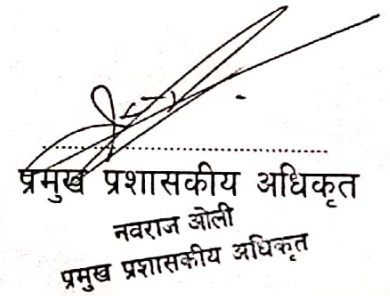 प्रमुख प्रशासकीय अधिकृत
नवराज ओली
प्रमुख प्रशासकीय अधिकृत